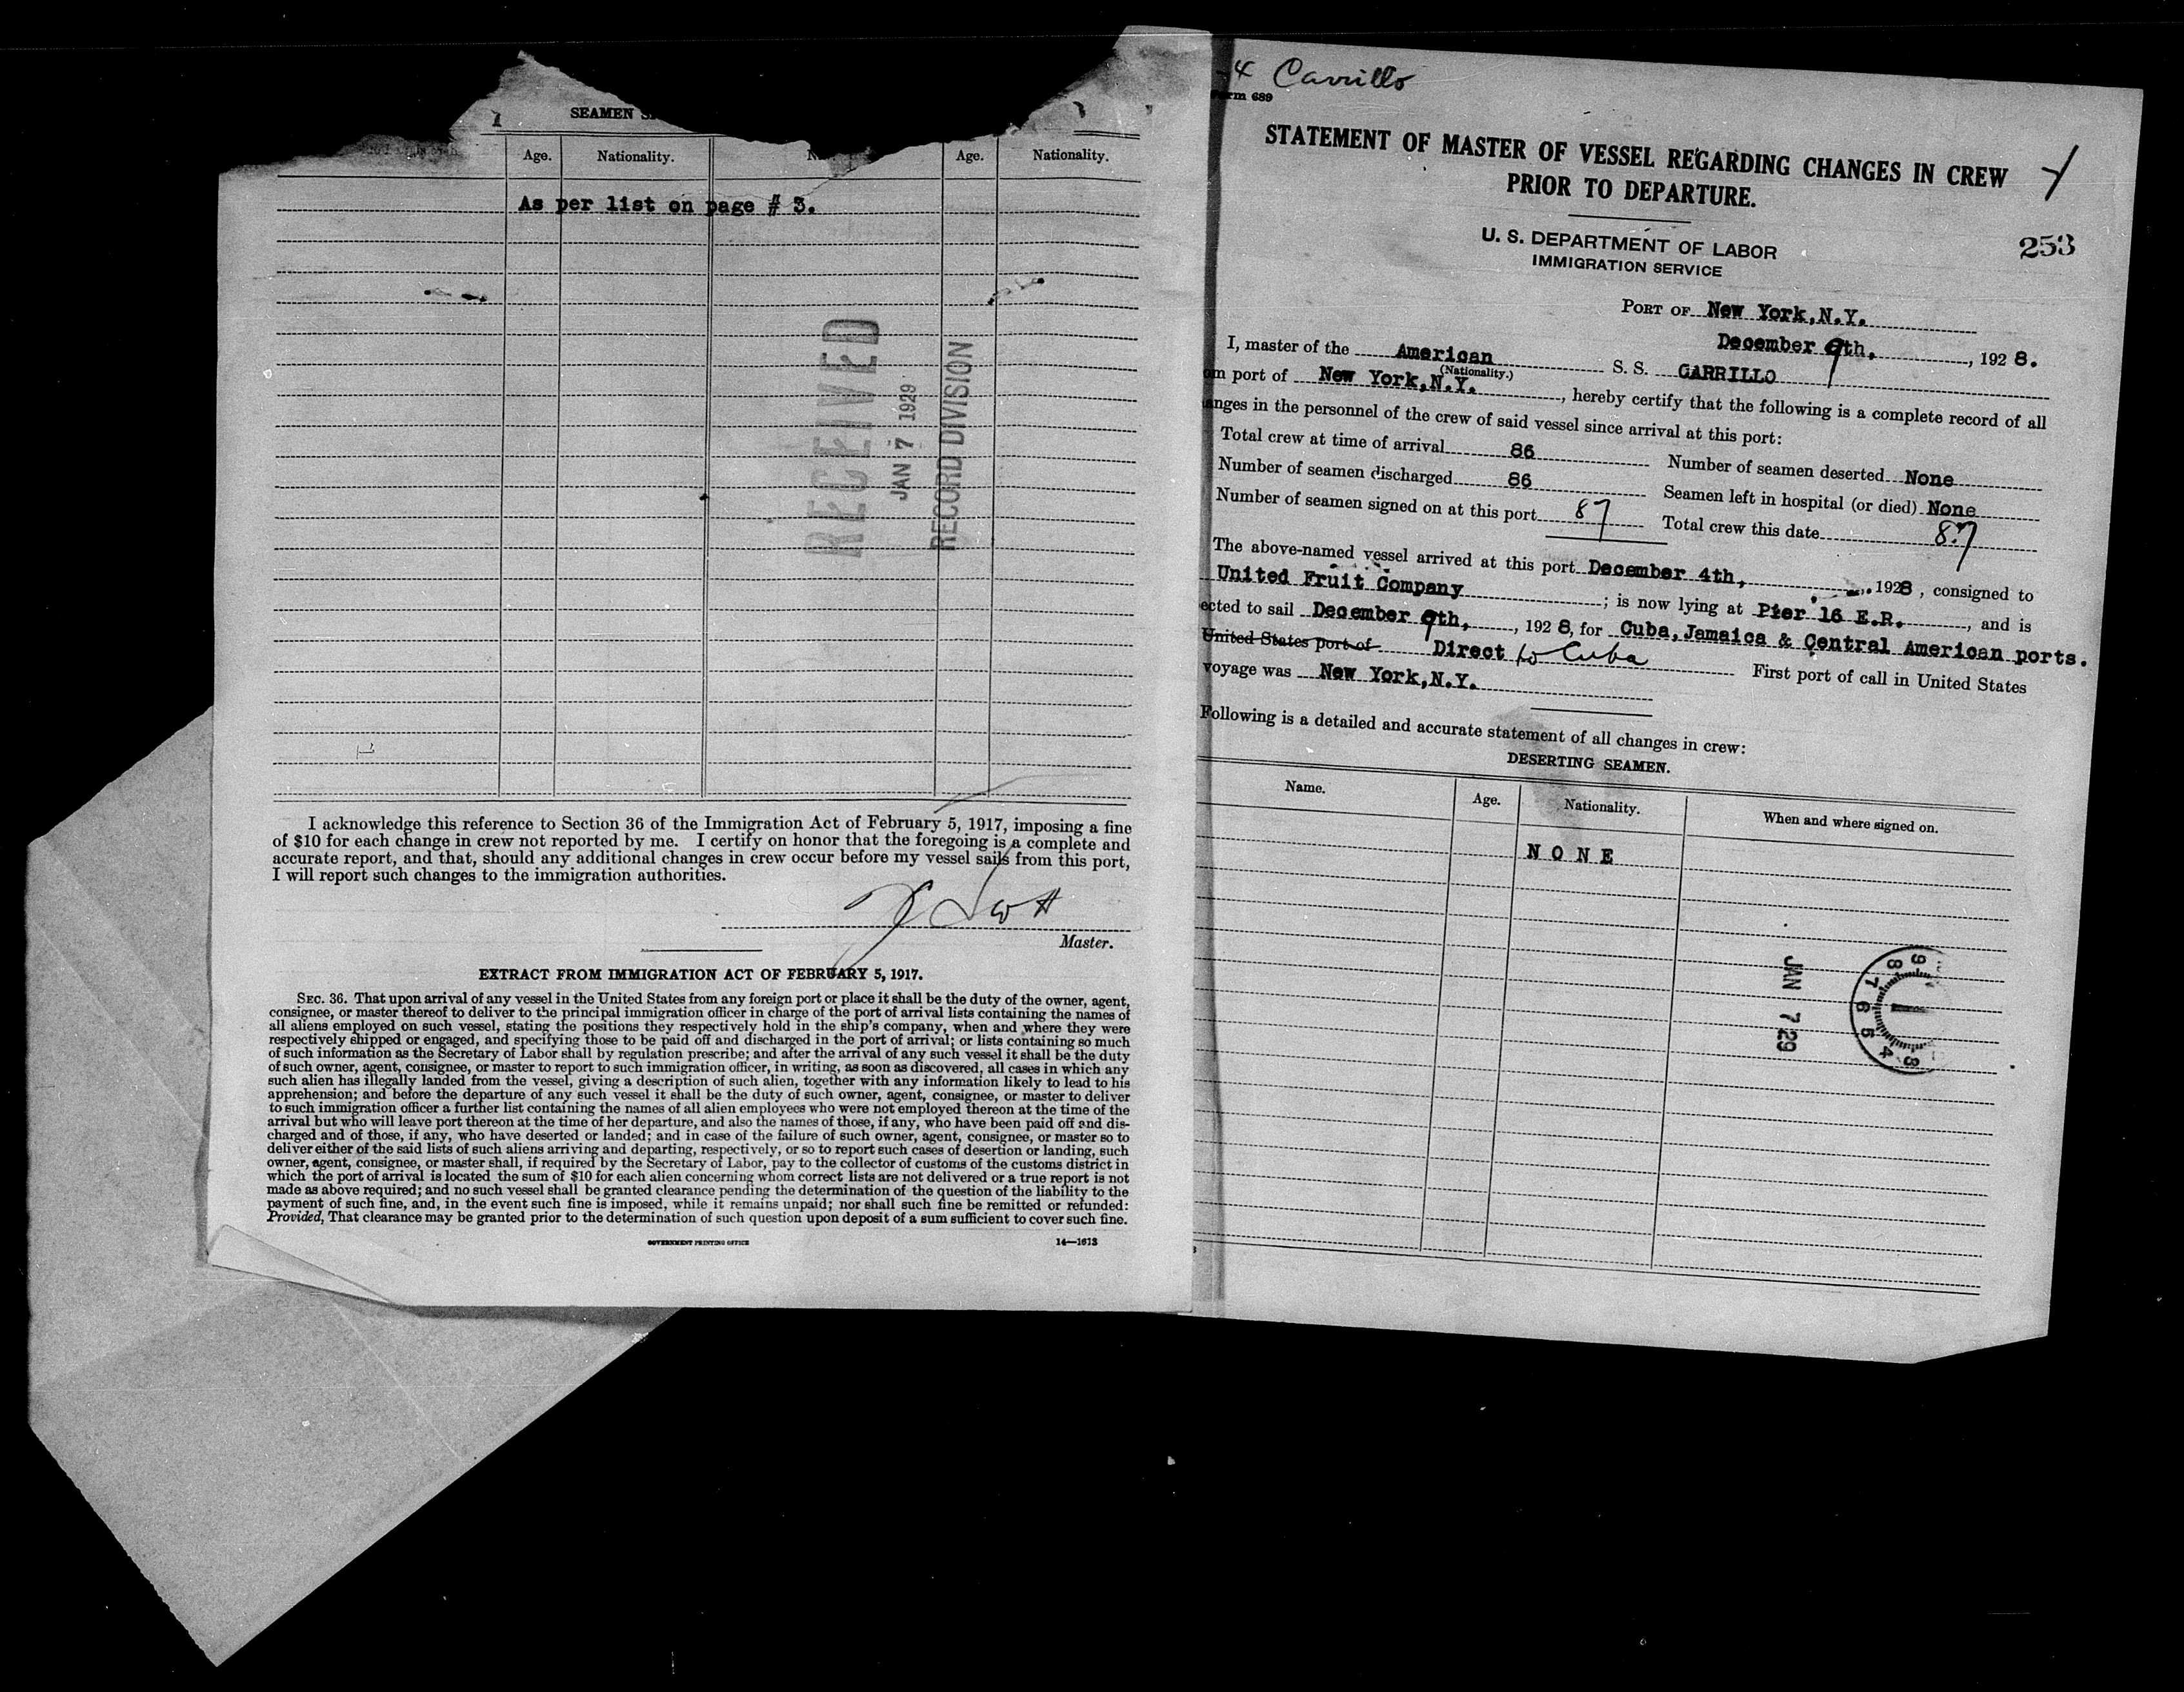 SEAMEN
Age. Nationality. Age. Nationality.
As per list on page # 3.
RECEIVED
JAN 7 1929
RECORD DIVISION
I acknowledge this reference to Section 36 of the Immigration Act of February 5, 1917, imposing a fine
of $10 for each change in crew not reported by me. I certify on honor that the foregoing is a complete and
accurate report, and that, should any additional changes in crew occur before my vessel sails from this port,
I will report such changes to the immigration authorities.
Scott
Master.
EXTRACT FROM IMMIGRATION ACT OF FEBRUARY 5, 1917.
SEC. 36. That upon arrival of any vessel in the United States from any foreign port or place it shall be the duty of the owner, agent,
consignee, or master thereof to deliver to the principal immigration officer in charge of the port of arrival lists containing the names of
all aliens employed on such vessel, stating the positions they respectively hold in the ship's company, when and where they were
respectively shipped or engaged, and specifying those to be paid off and discharged in the port of arrival; or lists containing so much
of such information as the Secretary of Labor shall by regulation prescribe; and after the arrival of any such vessel it shall be the duty
of such owner, agent, consignee, or master to report to such immigration officer, in writing, as soon as discovered, all cases in which any
such alien has illegally landed from the vessel, giving a description of such alien, together with any information likely to lead to his
apprehension; and before the departure of any such vessel it shall be the duty of such owner, agent, consignee, or master to deliver
to such immigration officer a further list containing the names of all alien employees who were not employed thereon at the time of the
arrival but who will leave port thereon at the time of her departure, and also the names of those, if any, who have been paid off and dis-
charged and of those, if any, who have deserted or landed; and in case of the failure of such owner, agent, consignee, or master so to
deliver either of the said lists of such aliens arriving and departing, respectively, or so to report such cases of desertion or landing, such
owner, agent, consignee, or master shall, if required by the Secretary of Labor, pay to the collector of customs of the customs district in
which the port of arrival is located the sum of $10 for each alien concerning whom correct lists are not delivered or a true report is not
made as above required; and no such vessel shall be granted clearance pending the determination of the question of the liability to the
payment of such fine, and, in the event such fine is imposed, while it remains unpaid; nor shall such fine be remitted or refunded:
Provided, That clearance may be granted prior to the determination of such question upon deposit of a sum sufficient to cover such fine.
GOVERNMENT PRINTING OFFICE 14—1613
-4 Carrillo
rm 689
STATEMENT OF MASTER OF VESSEL REGARDING CHANGES IN CREW
PRIOR TO DEPARTURE.
U. S. DEPARTMENT OF LABOR
IMMIGRATION SERVICE
253
PORT OF New York, N.Y.
December 9th, , 1928.
I, master of the American S. S. CARRILLO
(Nationality.)
om port of New York, N.Y. , hereby certify that the following is a complete record of all
anges in the personnel of the crew of said vessel since arrival at this port:
Total crew at time of arrival 86 Number of seamen deserted None
Number of seamen discharged 86 Seamen left in hospital (or died) None
Number of seamen signed on at this port 87 Total crew this date 87
The above-named vessel arrived at this port December 4th, , 1928 , consigned to
United Fruit Company ; is now lying at Pier 16 E.R. , and is
ected to sail December 9th, , 1928, for Cuba, Jamaica & Central American ports.
United States port of Direct to Cuba First port of call in United States
voyage was New York, N.Y.
Following is a detailed and accurate statement of all changes in crew:
DESERTING SEAMEN.
Name. Age. Nationality. When and where signed on.
NONE
JAN 7 29
9 8 7 6 5 4 3